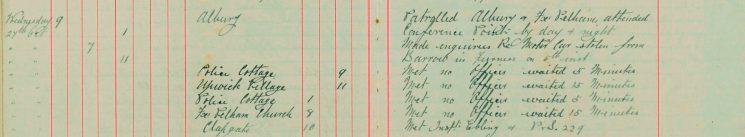 Wednesday 9 Albury Patrolled Albury & Fx Pelham, attended
27th Oct 1 Conference Points by day & night
" 7 Made enquiries Re Motor Car stolen from
" 11 Barrow in Furness on inst
" Police Cottage 9 Met no Officer waited 5 Minutes
" Upwick Village 11 Met no Officer waited 15 Minutes
" Police Cottage 1 Met no Officer waited 5 Minutes
" Fx Pelham Church 8 Met no Officer waited 15 Minutes
" Clapgate 10 Met Inspt. Ebling & P.S. 229